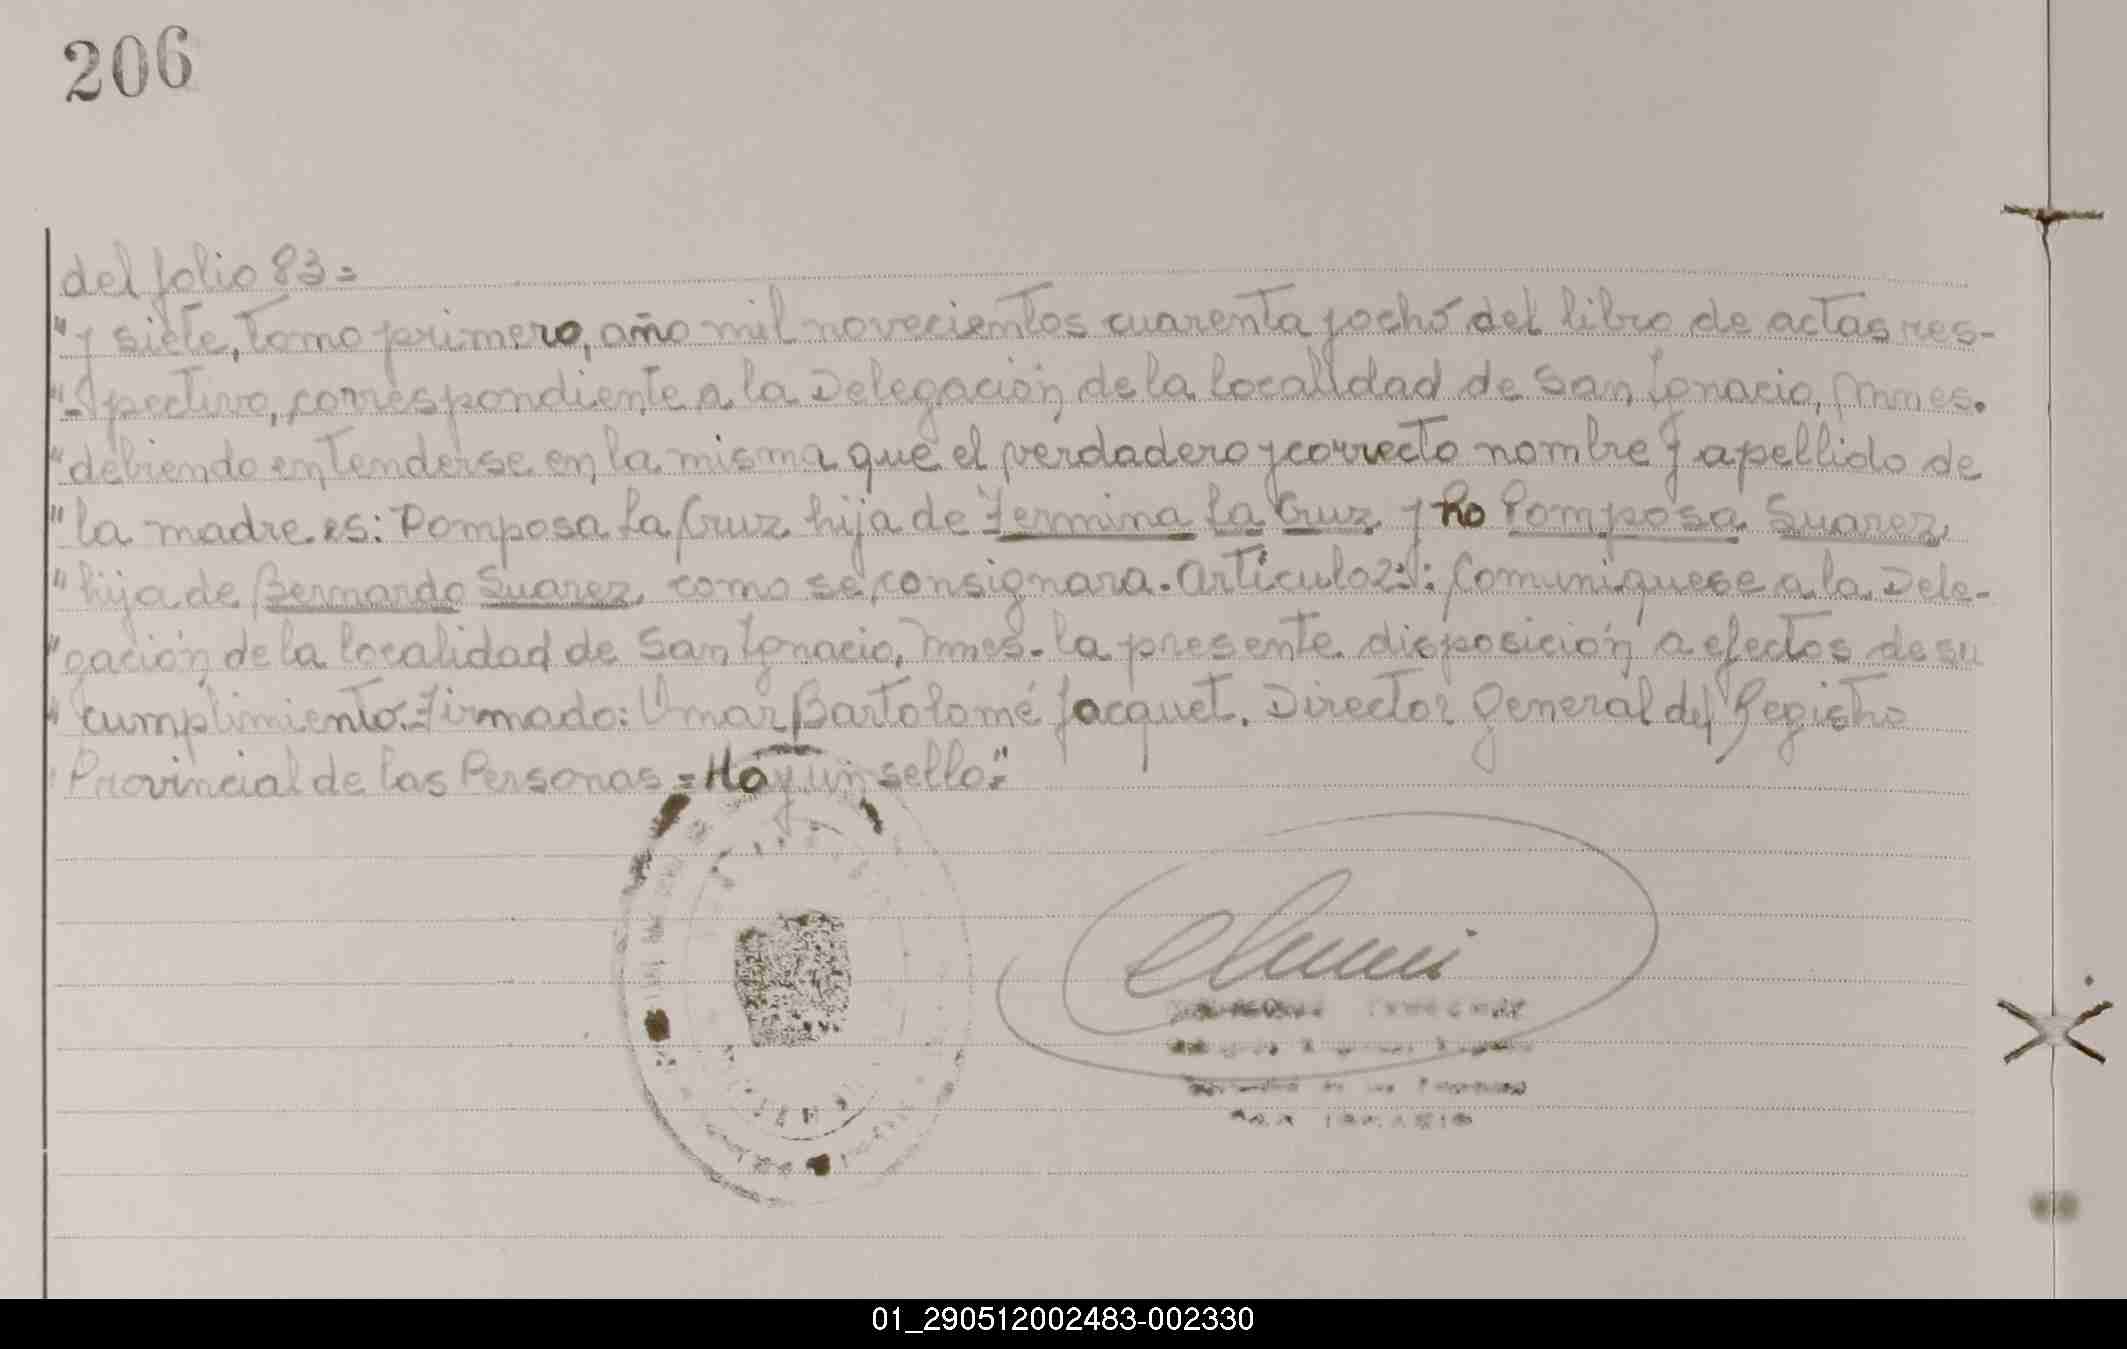 206
del folio 83=
"y siete, tomo primero, año mil novecientos cuarenta y ocho del libro de actas res-
"-pectivo, correspondiente a la Delegación de la localidad de San Ignacio, Mnes.
"debiendo entenderse en la misma que el verdadero y correcto nombre y apellido de
"la madre es: Pomposa La Cruz hija de Fermina La Cruz y no Pomposa Suarez
"hija de Bernardo Suarez, como se consignara. Articulo 2º: Comuniquese a la Dele-
"gación de la localidad de San Ignacio, Mnes. la presente disposición a efectos de su
"cumplimiento. Firmado: Omar Bartolomé Jacquet. Director General del Registro
Provincial de las Personas = Hay un sello="
01_290512002483-002330